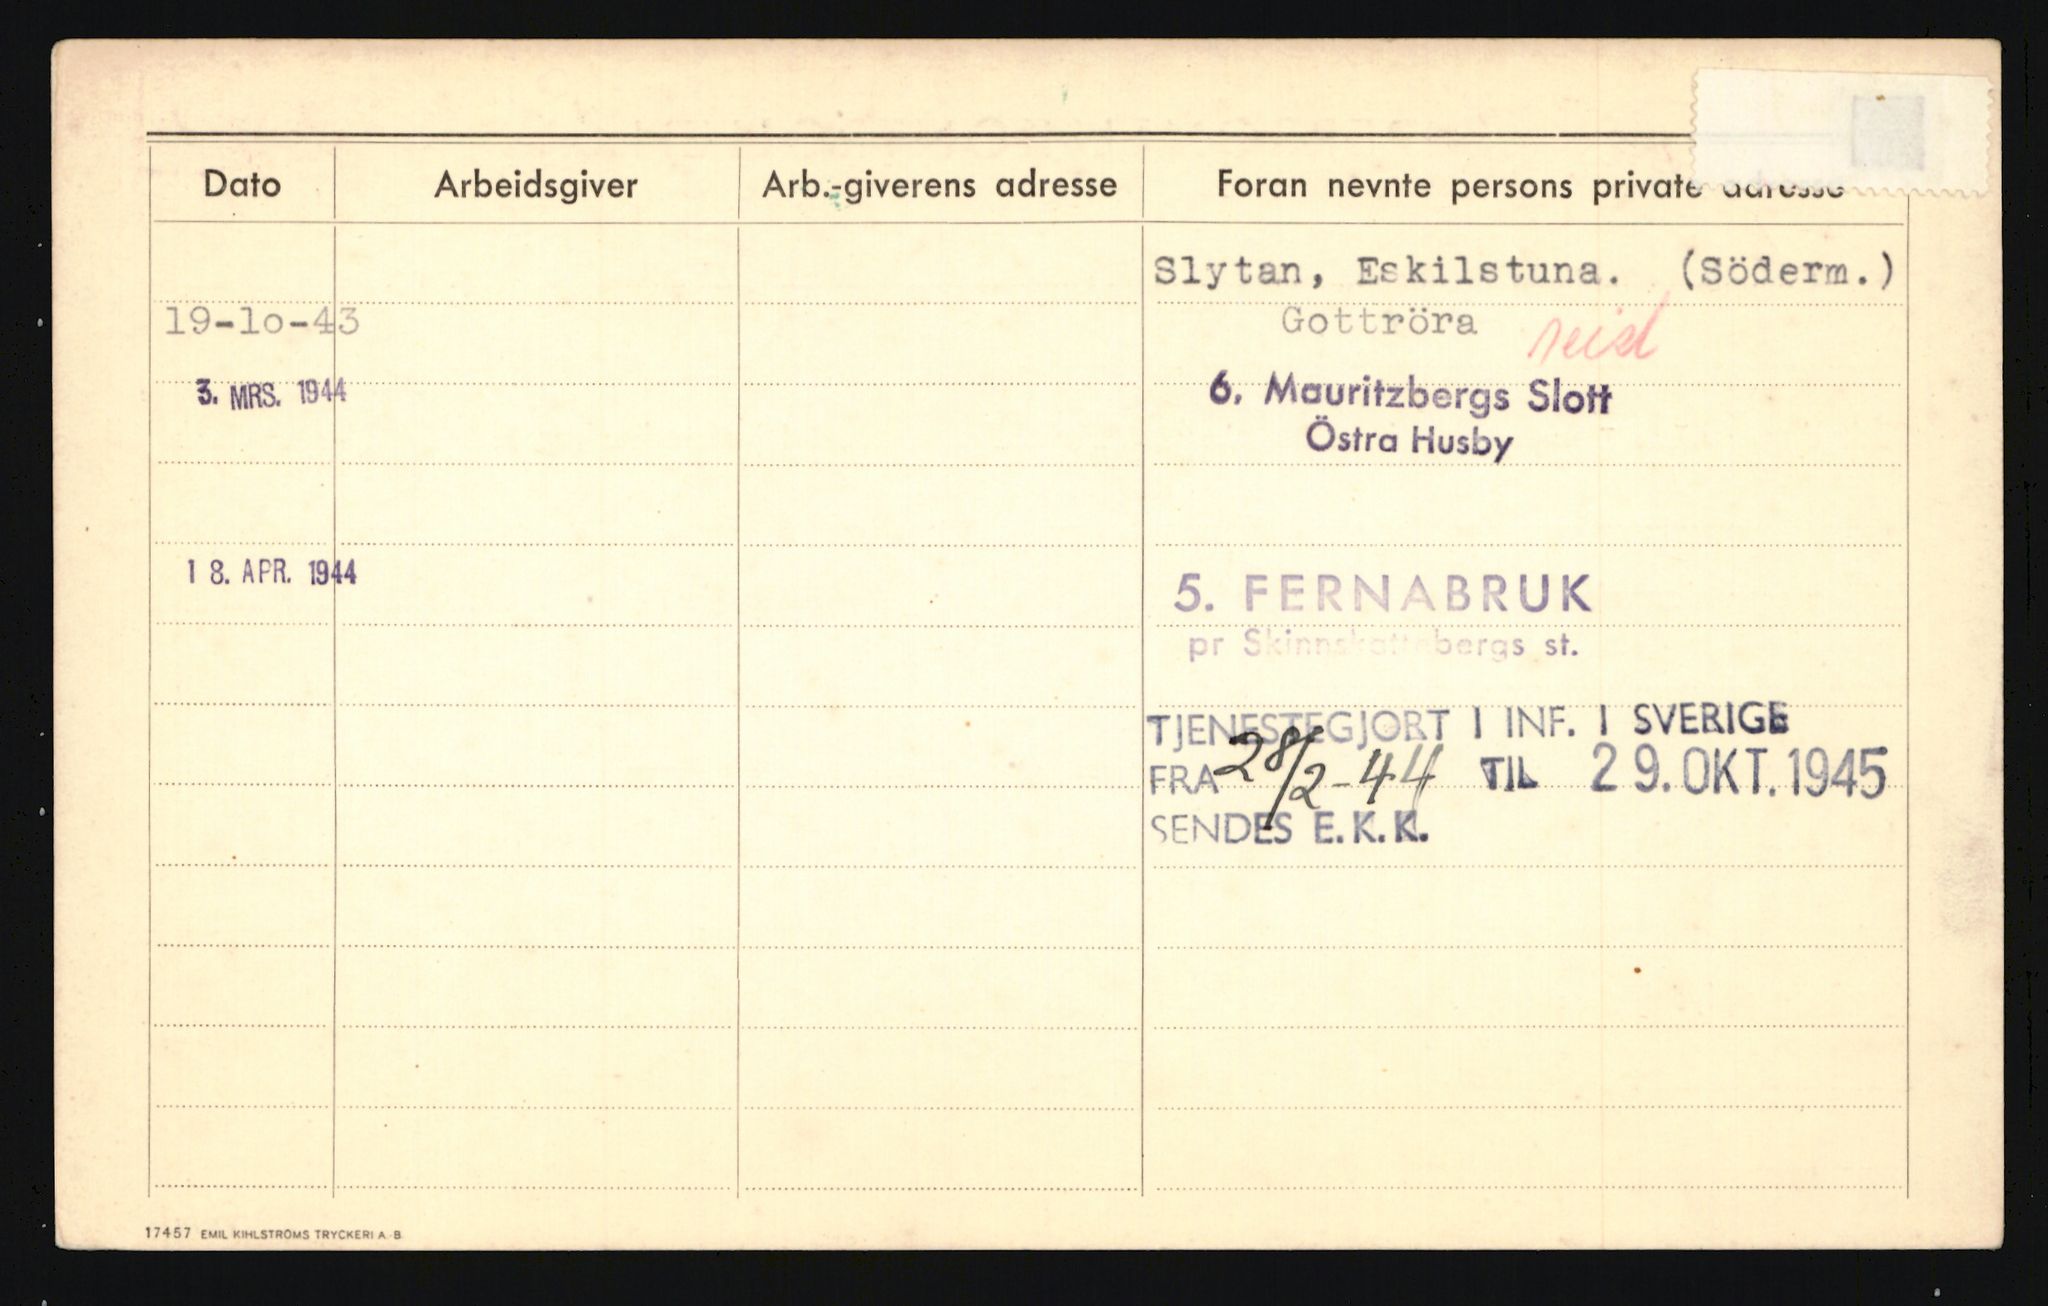 Dato Arbeidsgiver Arb.-giverens adresse Foran nevnte persons private adresse
Slytan, Eskilstuna. (Söderm.)
19-10-43 Gottröra
3. MRS. 1944 6. Mauritzbergs Slott
Östra Husby
18. APR. 1944 5. FERNABRUK
pr Skinnskattebergs st.
TJENESTEGJORT I INF. I SVERIGE
FRA 28/2-44 TIL 29. OKT. 1945
SENDES E.K.K.
17457 EMIL KIHLSTRÖMS TRYCKERI A.-B.